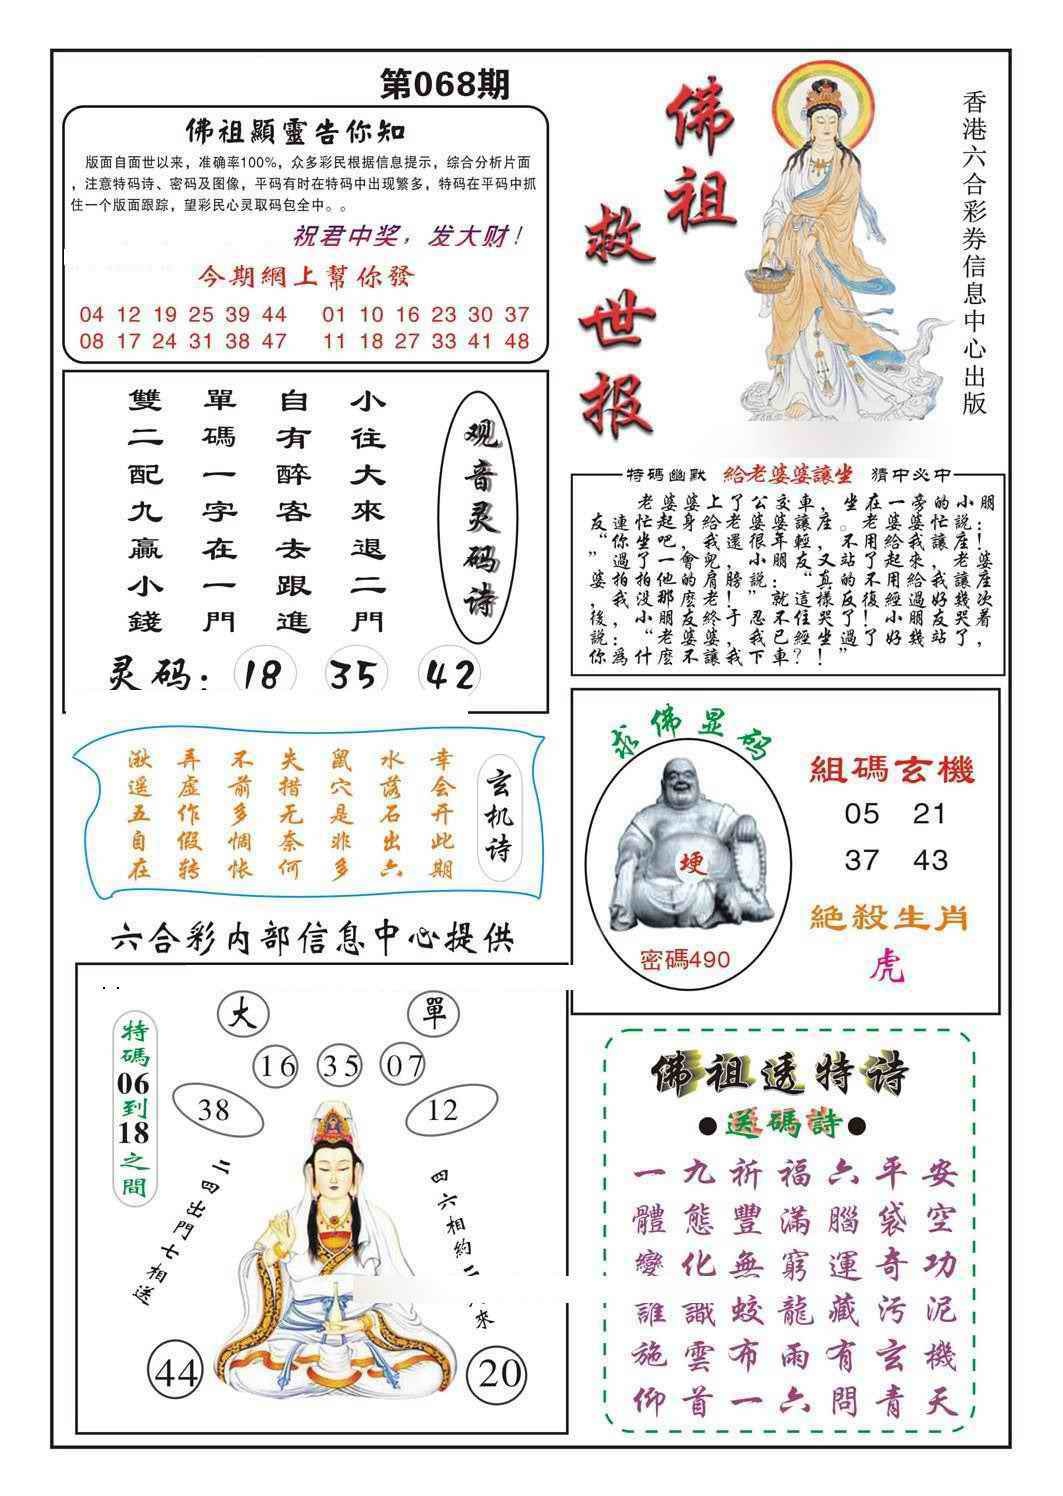 第068期
佛祖顯靈告你知
版面自面世以来，准确率100%，众多彩民根据信息提示，综合分析片面
，注意特码诗、密码及图像，平码有时在特码中出现繁多，特码在平码中抓
住一个版面跟踪，望彩民心灵取码包全中。。
祝君中奖，发大财！
今期網上幫你發
04 12 19 25 39 44 01 10 16 23 30 37
08 17 24 31 38 47 11 18 27 33 41 48
佛祖
救世报
香港六合彩券信息中心出版
观音灵码诗
小往大來退二門
自有醉客去跟進
單碼一字在一門
雙二配九贏小錢
灵码：18 35 42
特码幽默 給老婆婆讓坐 猜中必中
老婆婆上了公交車，坐在一旁的小朋
友連忙起身給老婆婆讓座。老婆婆忙説：
“你坐吧，我還很年輕，不用給我讓座！
”過了一會兒，小朋友又站了起來，老婆
婆拍拍他的肩膀説：“真的不用給我讓座
，我没那麽老！”就這樣反復經過好幾次
後，小朋友終于忍不住哭了！小朋友哭着
説：“老婆婆，我已經坐過了好幾站了，
你爲什麽不讓我下車？！”
玄机诗
幸会开此期
水落石出六
鼠穴是非多
失措无奈何
不前多惆怅
弄虚作假转
湫遥五自在
六合彩内部信息中心提供
求佛显码
埂
密碼490
組碼玄機
05 21
37 43
絶殺生肖
虎
特碼06到18之間
大 單
16 35 07
38 12
二四出門七相送
四六相約二
來
44 20
佛祖透特诗
●送碼詩●
一九祈福六平安
體態豐滿腦袋空
變化無窮運奇功
誰識蛟龍藏污泥
施雲布雨有玄機
仰首一六問青天